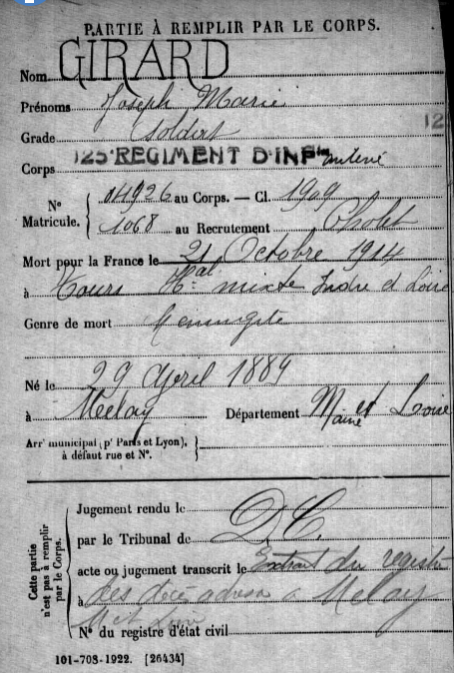 PARTIE À REMPLIR PAR LE CORPS.
Nom GIRARD
Prénoms Joseph Marie
Grade Soldat 12
Corps 125e REGIMENT D'INFie
N° Matricule. 04926 au Corps. — Cl. 1909
1068 au Recrutement Cholet
Mort pour la France le 21 Octobre 1914
à Tours Hal mixte Indre et Loire
Genre de mort Méningite
Né le 29 Avril 1889
à Melay Département Maine et Loire
Arrt municipal (pr Paris et Lyon),
à défaut rue et N°.
Cette partie n'est pas à remplir par le Corps.
Jugement rendu le
par le Tribunal de D.C.
acte ou jugement transcrit le Extrait du registre
à des décès adressé à Melay
M et Loire
N° du registre d'état civil
101-708-1922. [26434]